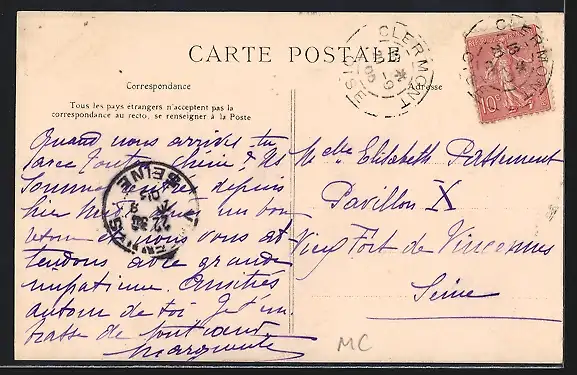 CARTE POSTALE
Correspondance
Adresse
Tous les pays étrangers n'acceptent pas la
correspondance au recto, se renseigner à la Poste
CLERMONT
OISE
CLERMONT
OISE
10
SEINE
Quand nous arrives tu
chérie ? Ns
Sommes depuis
hier un bon
retour et nous vous at
tendons avec grande
impatience. Amitiés
autour de toi Je t'em
brasse de tout cœur
Marguerite
Melle Elisabeth Passement
Pavillon X
Vieux Fort de Vincennes
Seine
MC